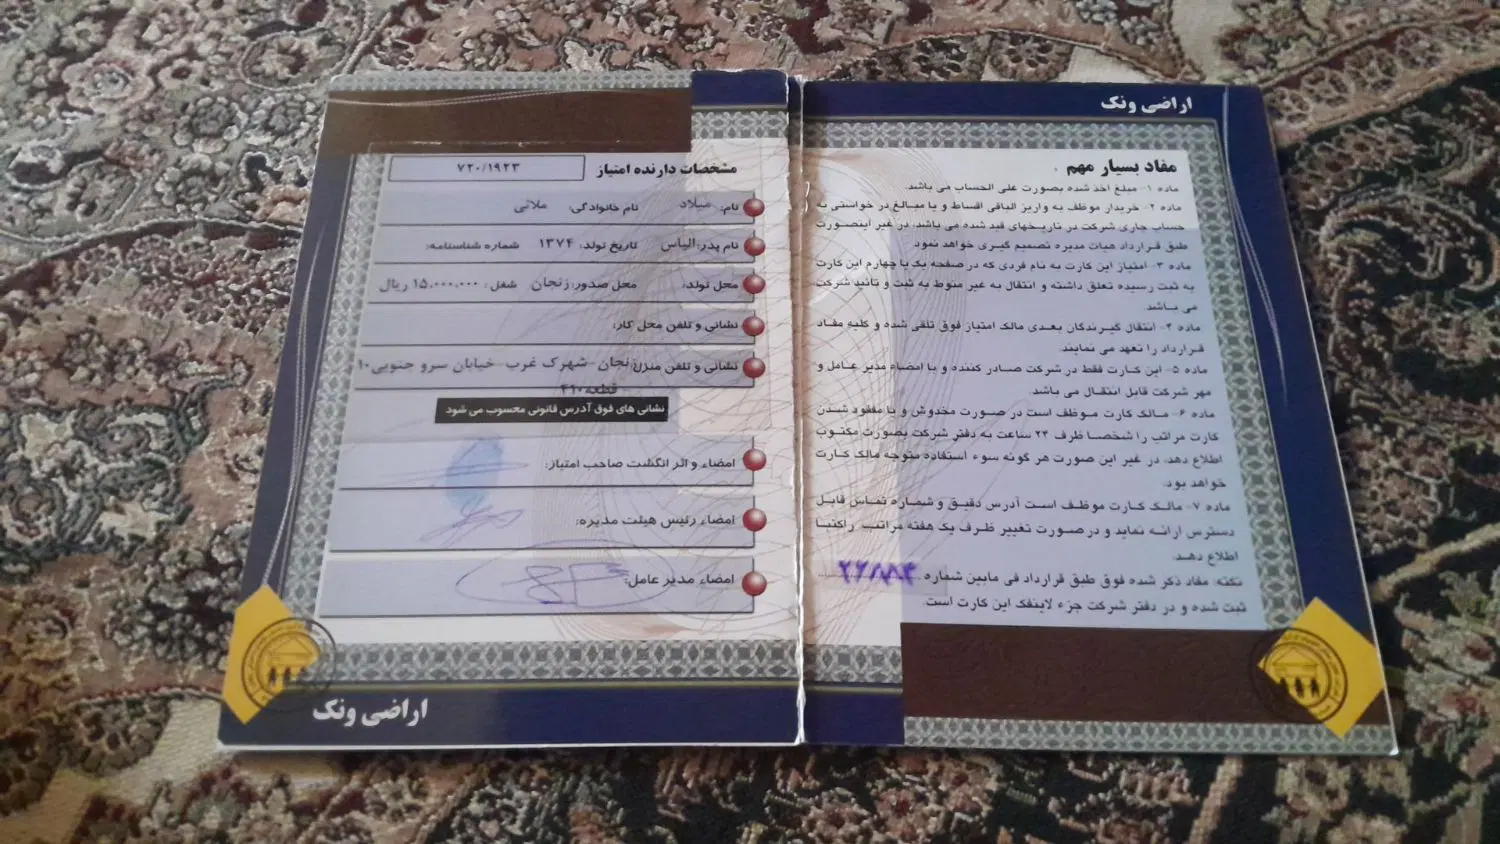 اراضی ونک
مفاد بسیار مهم .
ماده ۱- مبلغ اخذ شده بصورت علی الحساب می باشد.
ماده ۲- خریدار موظف به واریز الباقی اقساط و یا مبالغ در خواستی به
حساب جاری شرکت در تاریخهای قید شده می باشد، در غیر اینصورت
طبق قرارداد هیات مدیره تصمیم گیری خواهد نمود.
ماده ۳- امتیاز این کارت به نام فردی که در صفحه یک یا چهارم این کارت
به ثبت رسیده تعلق داشته و انتقال به غیر منوط به ثبت و تائید شرکت
می باشد
ماده ۴- انتقال گیرندگان بعدی مالک امتیاز فوق تلقی شده و کلیه مفاد
قرارداد را تعهد می نمایند.
ماده ۵- این کارت فقط در شرکت صادر کننده و با امضاء مدیر عامل و
مهر شرکت قابل انتقال می باشد
ماده ۶- مالک کارت موظف است در صورت مخدوش و یا مفقود شدن
کارت مراتب را شخصا ظرف ۲۴ ساعت به دفتر شرکت بصورت مکتوب
اطلاع دهد، در غیر این صورت هر گونه سوء استفاده متوجه مالک کارت
خواهد بود.
ماده ۷- مالک کارت موظف است آدرس دقیق و شماره تماس قابل
دسترس ارائه نماید و در صورت تغییر ظرف یک هفته مراتب راکتبا
اطلاع دهد.
نکته: مفاد ذکر شده فوق طبق قرارداد فی مابین شماره ۲۲۸۸۴
ثبت شده و در دفتر شرکت جزء لاینفک این کارت است.
مشخصات دارنده امتیاز ۷۲۰/۱۹۲۳
نام: میلاد نام خانوادگی: ملائی
نام پدر: الیاس تاریخ تولد: ۱۳۷۴ شماره شناسنامه:
محل تولد: محل صدور: زنجان شغل: ۱۵,۰۰۰,۰۰۰ ریال
نشانی و تلفن محل کار:
نشانی و تلفن منزل: زنجان-شهرک غرب-خیابان سرو جنوبی۱۰
-قطعه۴۱۰
نشانی های فوق آدرس قانونی محسوب می شود
امضاء و اثر انگشت صاحب امتیاز:
امضاء رئیس هیئت مدیره:
امضاء مدیر عامل:
اراضی ونک